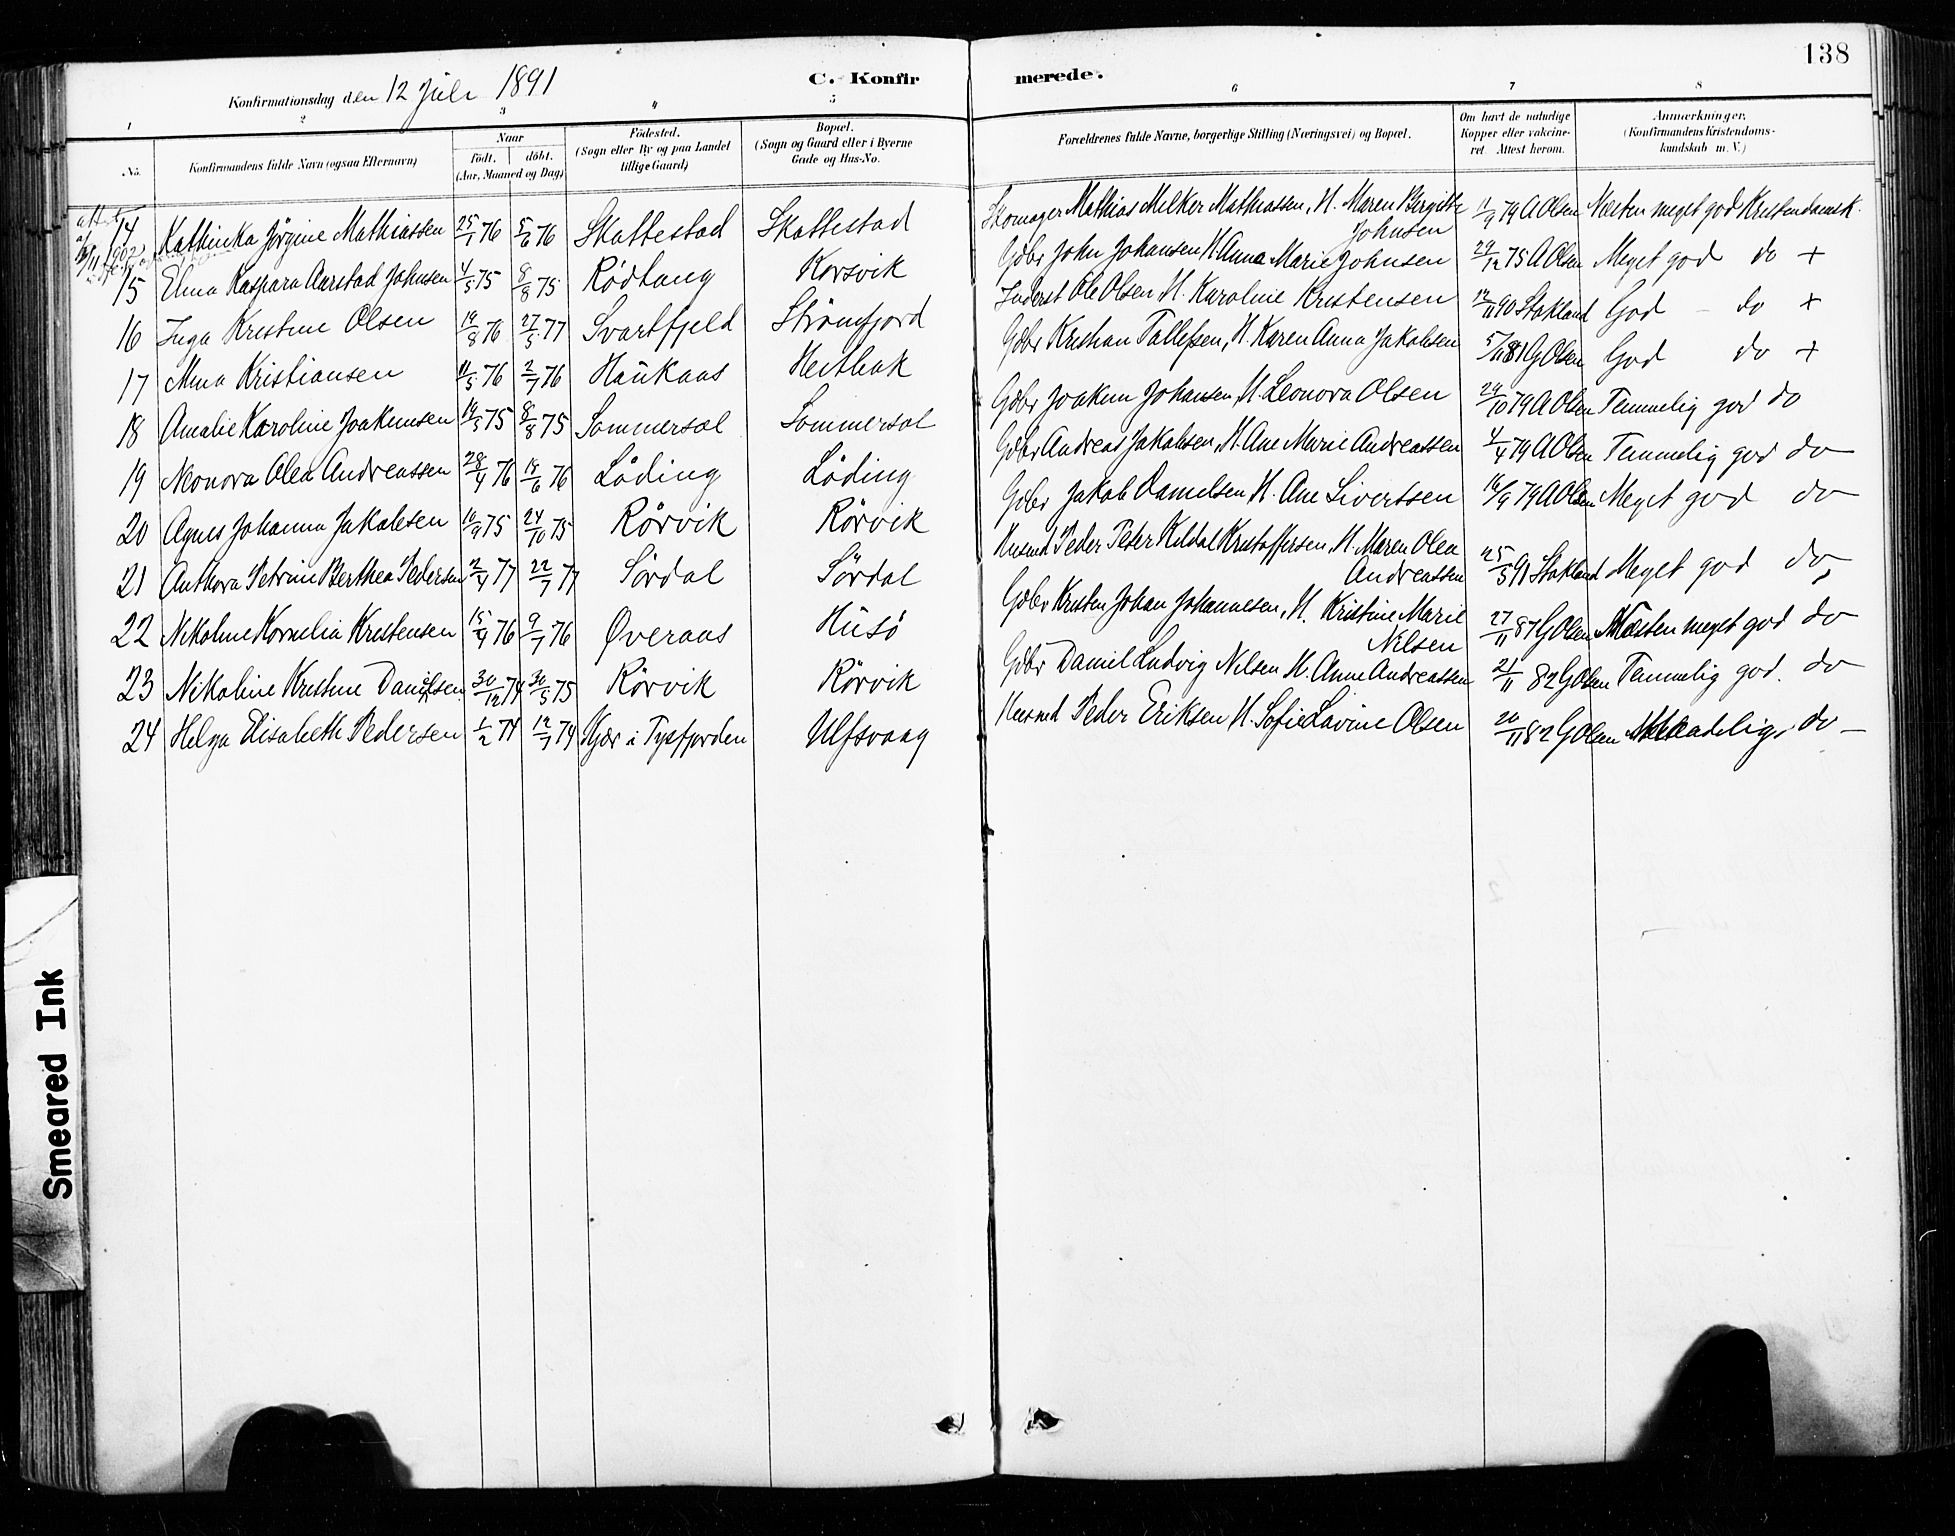 138
Konfirmationsdag den 12 Juli 1891
C. Konfirmerede.
1 2 3 4 5 6 7 8
No. Konfirmandens fulde Navn (ogsaa Efternavn) Naar Født. døbt. (Aar, Maaned og Dag) Fødested. (Sogn eller By og paa Landet tillige Gaard) Bopæl. (Sogn og Gaard eller i Byerne Gade og Hus-No. Forældrenes fulde Navne, borgerlige Stilling (Næringsvei) og Bopæl. Om havt de naturlige Kopper eller vakcineret. Attest herom. Anmærkninger. (Konfirmandens Kristendomskundskab m. V.)
14 Kathinka Jørgine Mathiassen 25/1 76 5/6 76 Skattestad Skattestad Skomager Mathias Melker Mathiassen, H. Maren Birgitte Johnsen 11/9 79 A Olsen Næsten meget god Kristendomsk.
15 Elma Kaspara Aarstad Johnsen 4/5 75 8/8 75 Rødtang Korsvik Gdbr John Johansen H Anna Marie Johnsen 29/12 75 A Olsen Meget god do +
16 Inga Kristine Olsen 19/8 76 27/5 77 Svartfjeld Strømfjord Inderst Ole Olsen H. Karoline Kristensen 12/11 90 Stokland God - do +
17 Mina Kristiansen 11/5 76 2/7 76 Haukaas Heitbak Gdbr Kristian Tollefsen, H. Karen Anna Jakobsen 5/11 81 G Olsen God do +
18 Amalie Karoline Joakimsen 19/5 75 8/8 75 Sommersæl Sommersæl Gdbr Joakim Johansen, H Leonora Olsen 29/10 79 A Olsen Temmelig god do
19 Nonora Olea Andreassen 28/4 76 18/6 76 Løding Løding Gdbr Andreas Jakobsen, H. Ane Marie Andreassen 4/4 79 A Olsen Temmelig god do
20 Agnes Johanna Jakobsen 10/9 75 24/10 75 Rørvik Rørvik Gdbr Jakob Danielsen H. Ane Sivertsen 16/9 79 A Olsen Meget god do
21 Anthora Petrine Berthea Pedersen 2/4 77 22/7 77 Sørdal Sørdal Husmd Peder Peter Kildal Kristoffersen, H. Maren Olea Andreassen 25/5 91 Stokland Meget god do
22 Nikoline Kornelia Kristensen 15/4 76 9/7 76 Øveraas Husø Gdbr Kristen Johan Johannesen, H. Kristine Marie Nilsen 27/11 87 G Olsen Næsten meget god do
23 Nikoline Kristine Danielsen 30/12 74 30/5 75 Rørvik Rørvik Gdbr Daniel Ludvig Nilsen H. Anne Andreassen 21/11 82 G Olsen Temmelig god. do
24 Helga Elisabeth Pedersen 1/2 74 12/7 74 Kjær i Tysfjorden Ulfsvaag Husmd Peder Eriksen H. Sofie Lavine Olsen 20/11 82 G Olsen do
Smeared Ink